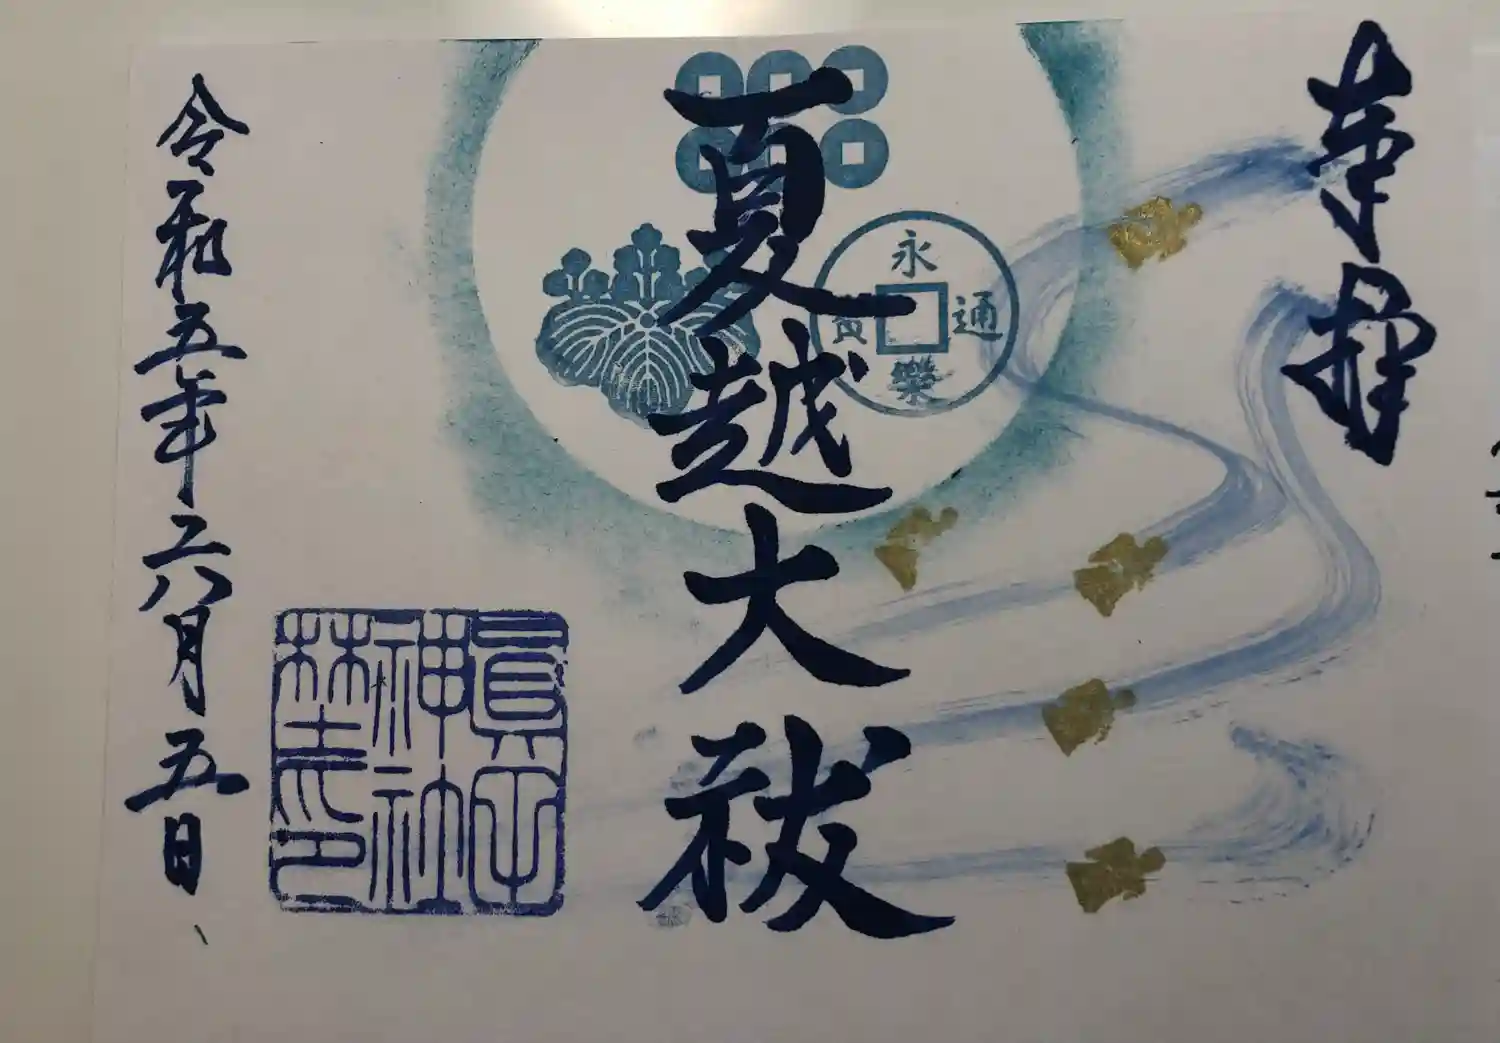 奉拝
夏越大祓
永樂通寳
神社
令和五年六月五日